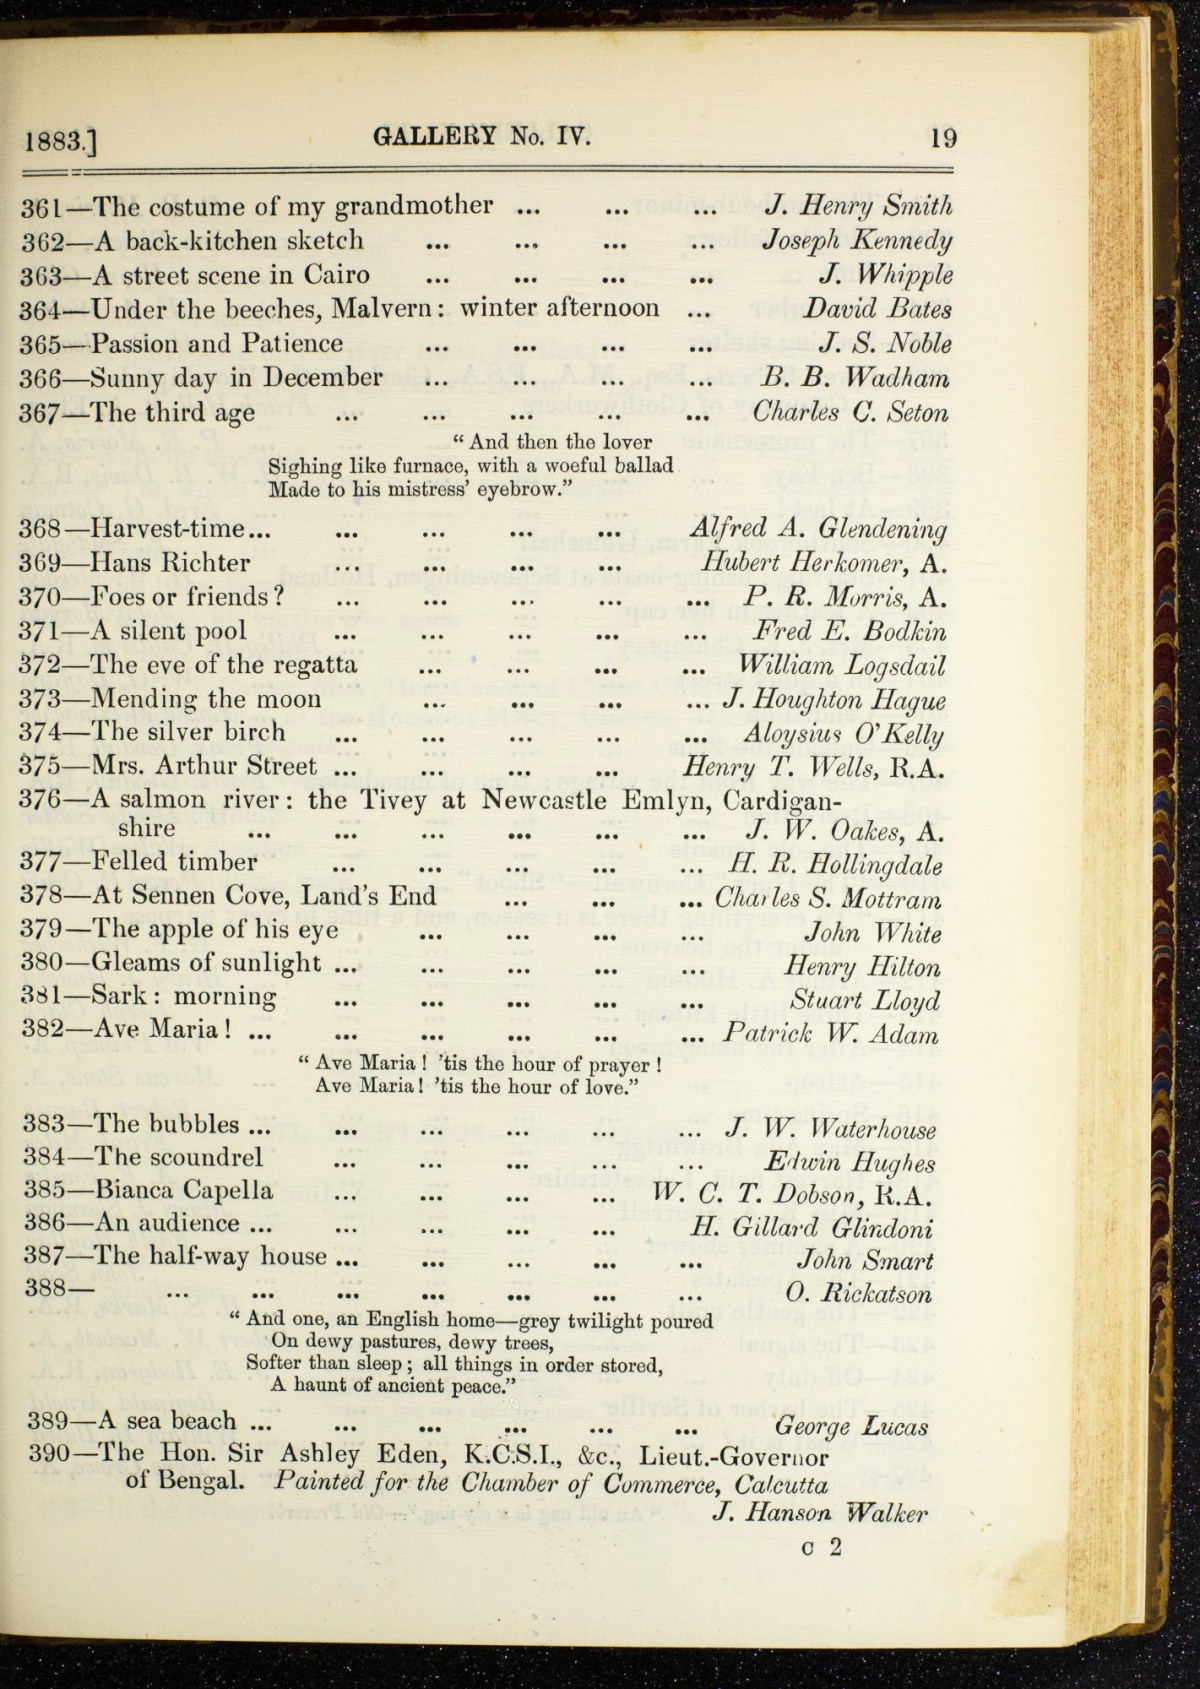 1883.] GALLERY No. IV. 19
361—The costume of my grandmother ... ... ... J. Henry Smith
362—A back-kitchen sketch ... ... ... ... Joseph Kennedy
363—A street scene in Cairo ... ... ... ... J. Whipple
364—Under the beeches, Malvern: winter afternoon ... David Bates
365—Passion and Patience ... ... ... ... J. S. Noble
366—Sunny day in December ... ... ... ... B. B. Wadham
367—The third age ... ... ... ... ... Charles C. Seton
“And then the lover
Sighing like furnace, with a woeful ballad
Made to his mistress’ eyebrow.”
368—Harvest-time... ... ... ... ... Alfred A. Glendening
369—Hans Richter ... ... ... ... Hubert Herkomer, A.
370—Foes or friends? ... ... ... ... ... P. R. Morris, A.
371—A silent pool ... ... ... ... ... Fred E. Bodkin
372—The eve of the regatta ... ... ... ... William Logsdail
373—Mending the moon ... ... ... ... J. Houghton Hague
374—The silver birch ... ... ... ... ... Aloysius O’Kelly
375—Mrs. Arthur Street ... ... ... ... Henry T. Wells, R.A.
376—A salmon river: the Tivey at Newcastle Emlyn, Cardigan-
shire ... ... ... ... ... ... J. W. Oakes, A.
377—Felled timber ... ... ... ... ... H. R. Hollingdale
378—At Sennen Cove, Land’s End ... ... ... Charles S. Mottram
379—The apple of his eye ... ... ... ... John White
380—Gleams of sunlight ... ... ... ... ... Henry Hilton
381—Sark: morning ... ... ... ... ... Stuart Lloyd
382—Ave Maria! ... ... ... ... ... ... Patrick W. Adam
“Ave Maria! ’tis the hour of prayer!
Ave Maria! ’tis the hour of love.”
383—The bubbles ... ... ... ... ... ... J. W. Waterhouse
384—The scoundrel ... ... ... ... ... Edwin Hughes
385—Bianca Capella ... ... ... ... W. C. T. Dobson, R.A.
386—An audience ... ... ... ... ... H. Gillard Glindoni
387—The half-way house ... ... ... ... ... John Smart
388— ... ... ... ... ... ... ... O. Rickatson
“And one, an English home—grey twilight poured
On dewy pastures, dewy trees,
Softer than sleep; all things in order stored,
A haunt of ancient peace.”
389—A sea beach ... ... ... ... ... ... George Lucas
390—The Hon. Sir Ashley Eden, K.C.S.I., &c., Lieut.-Governor
of Bengal. Painted for the Chamber of Commerce, Calcutta
J. Hanson Walker
C 2